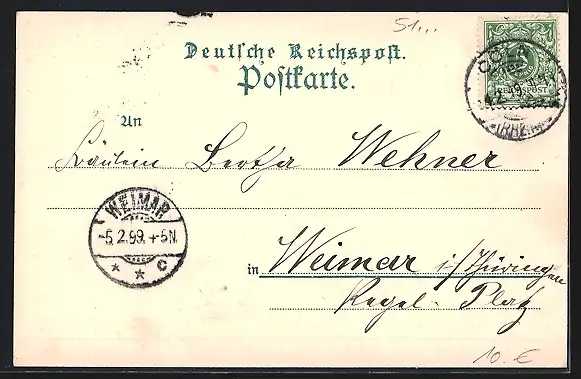 51...
Deutsche Reichspost.
Postkarte.
REICHSPOST
An
Fräulein Bertha Wehner
WEIMAR
5.2.99. 4-5N.
* * c
in Weimar i/Thüringen
Kegel-Platz
10.€